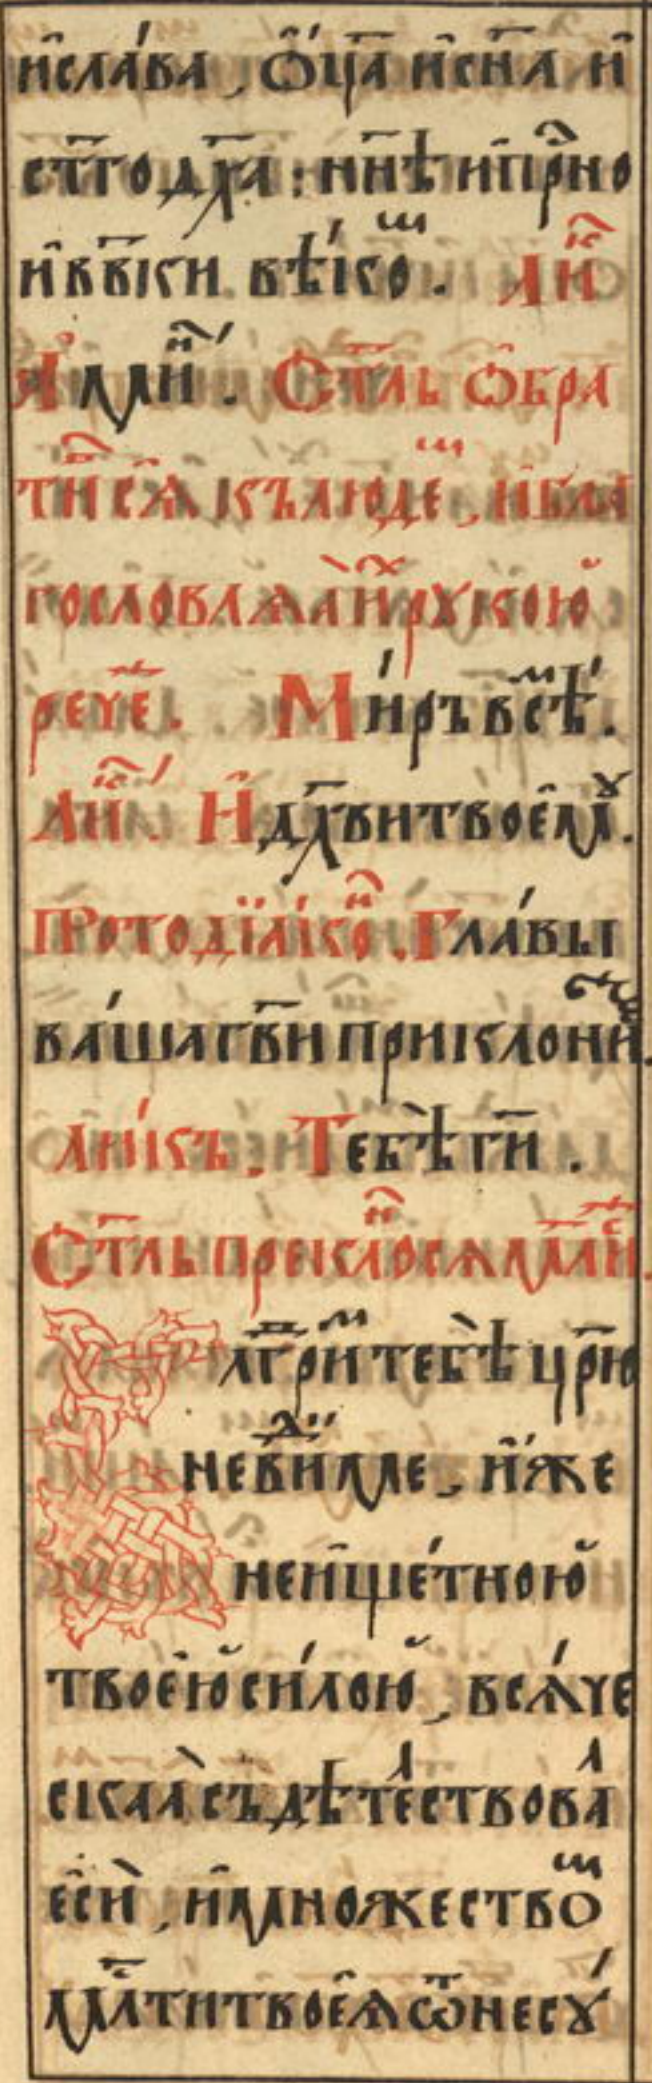 и҆сла́ва , ѻ҆ц҃а и҆сн҃а и҆
ст҃годх҃а : нн҃ѣ и҆прⷭ҇но
и҆вв҃ки вѣ́кѡⷨ . Лиⷦ҇
А҆ми́ⷩ҇ . Ст҃ль ѡ҆бра
ти́ⷡ҇сѧ къ люде́ⷨ , и҆бла
гословлѧѧ̀ и҆хрꙋкою̀
рече́ⷮ . Ми́ръ всѣ́ⷨ .
Лиⷦ҇ . И҆дх҃ви твоемꙋ̀ .
Протодїа́коⷩ҇ . Главы̀
ва́ша гв҃и приклони́ⷮ .
Ли́къ . Тебѣ̀ гн҃и .
Ст҃ль преклоⷩ҇сѧ мл҃иⷮ .
Хв҃лгри́ⷨ тебѣ̀ цр҃ю
неви́ⷣиме , и҆́же
неищетною
твоею си́лою , всѧ́че
скаѧ̀ съдѣ́теⷧ҇ствоваⷧ҇
е҆сѝ , и҆множество́ⷨ
мл҃ти твоеѧ̀ ѿнесꙋ́